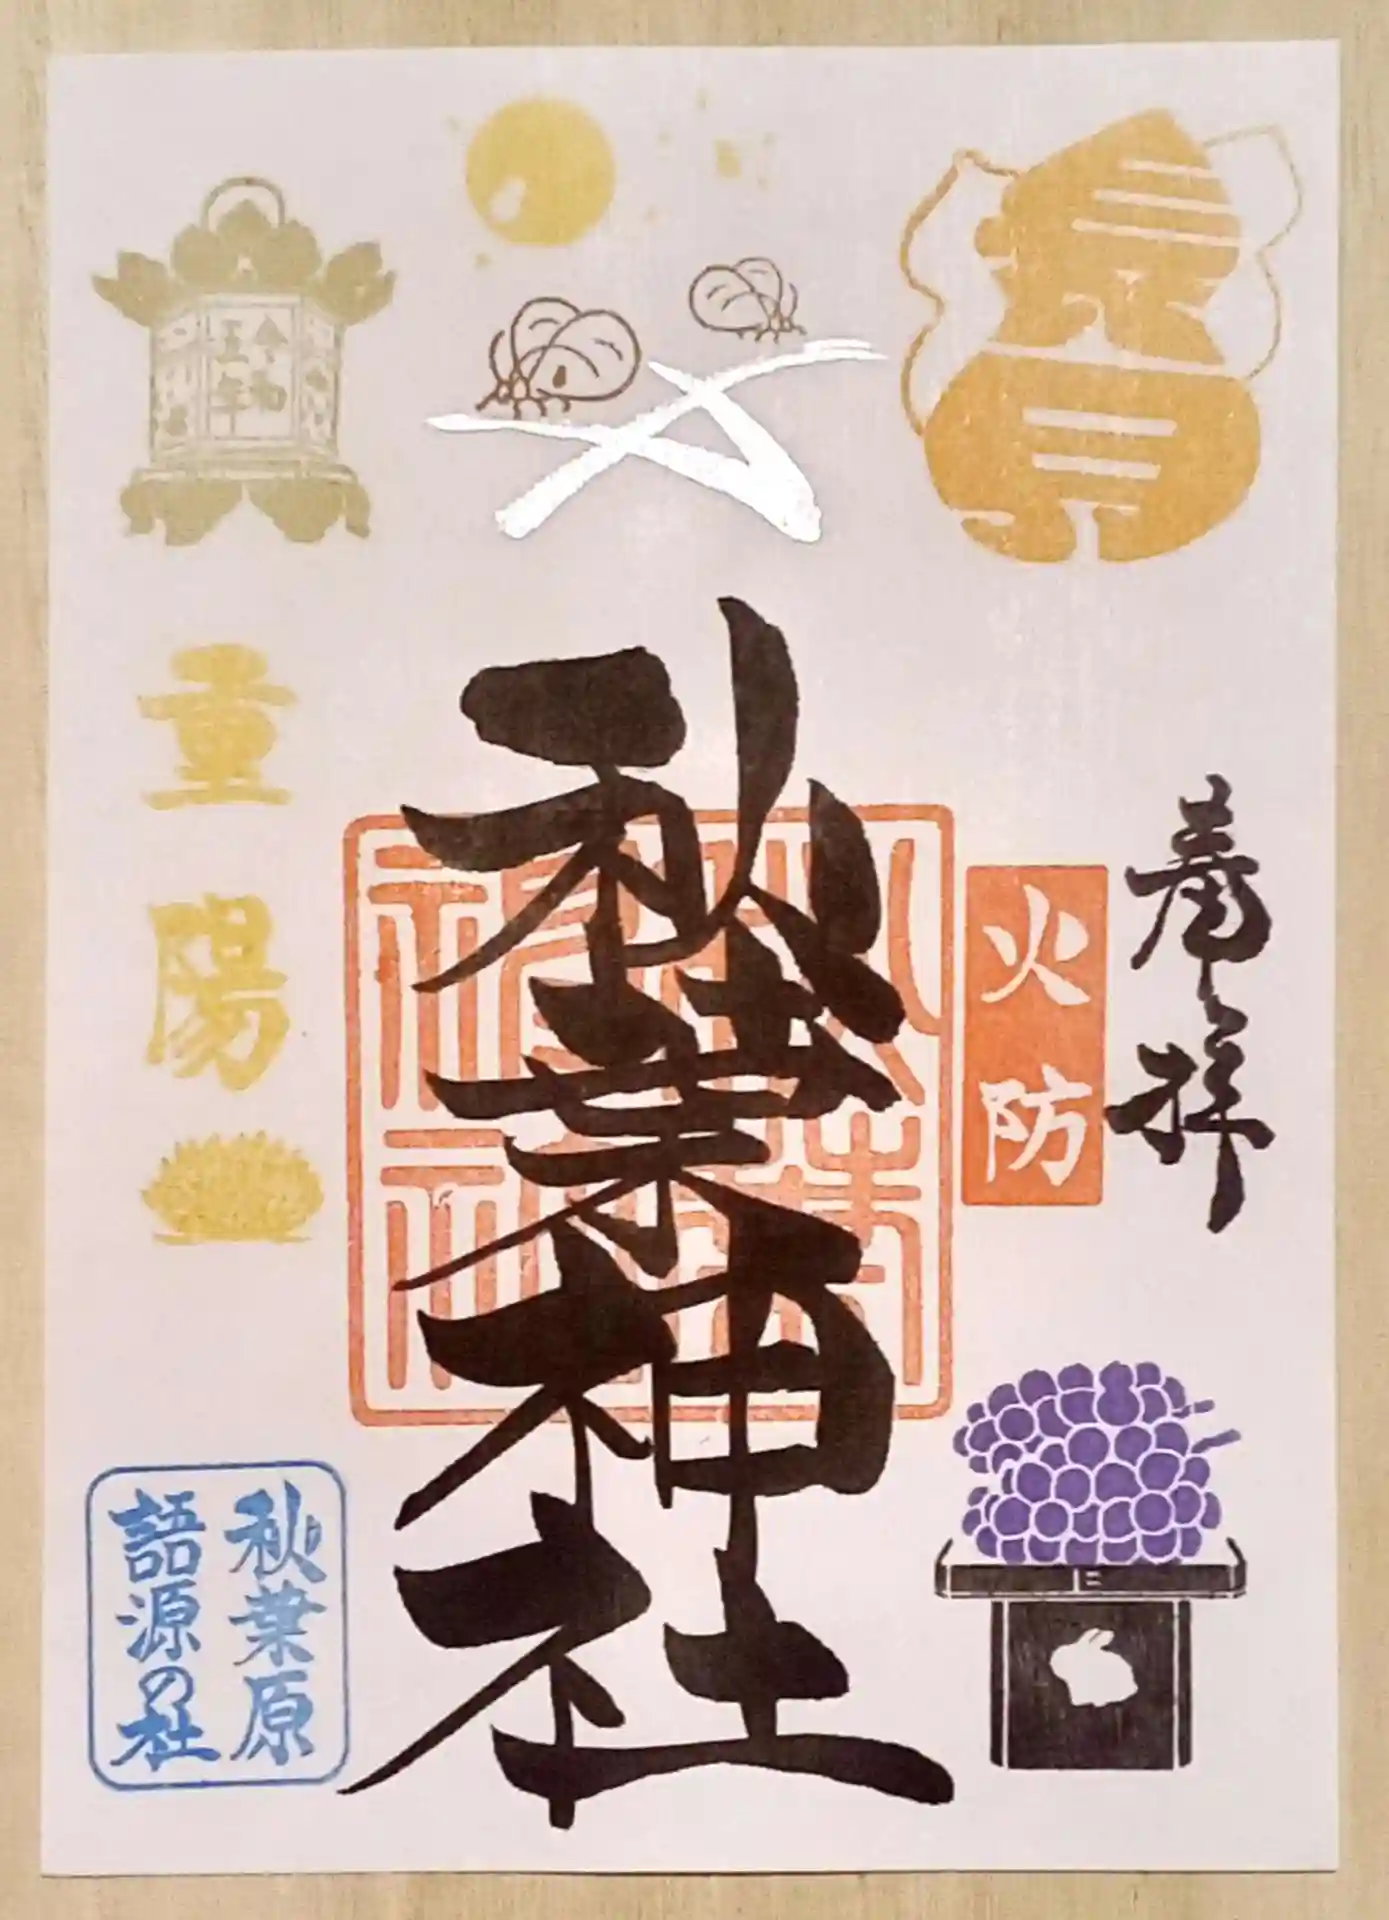 奉拝
火防
秋葉神社
秋葉神社
令和
五年
重陽
秋葉原
語源の社